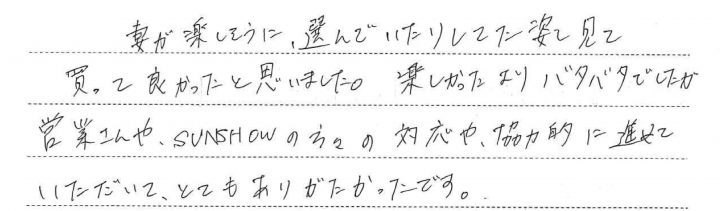 妻が楽しそうに、選んでいたりしてた姿を見て
買って良かったと思いました。楽しかったよりバタバタでしたが
営業さんや、SUNSHOWの方々の対応や、協力的に進めて
いただいて、とてもありがたかったです。